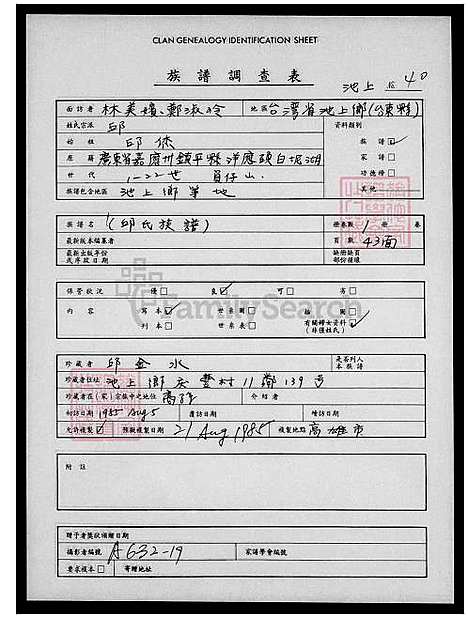 CLAN GENEALOGY IDENTIFICATION SHEET
族譜調查表
池上 40
面訪者 林美嬪、鄭淑玲 地區 台灣省池上鄉(台東縣)
姓氏宗派 邱 資料類別
始祖 邱 族譜 ✓
原籍 廣東省嘉應州鎮平縣 家譜
世代 1-22世 功德榜
族譜包含地區 池上鄉等地 其他
族譜名 (邱氏族譜) 冊卷數 1 冊 卷
最新版本編纂者 頁數 43面
最新出版年份 缺冊缺頁
或序政日期 部份種類
FamilySearch
保管狀況 優 良 ✓ 可 劣
內容 寫本 ✓ 世系圖 插圖
刊本 世系表 有關婦女資料 ✓
(非僅姓氏)
珍藏者 邱金水 是否列入本族譜
珍藏者住址 池上鄉 村11鄰139號
珍藏者在(家)宗族中之地位 介紹者
初訪日期 1985 Aug 5 覆訪日期 續訪日期
允許複製 ✓ 預擬複製日期 21 Aug 1985 複製地點 高雄市
附註
贈予者獎狀頒贈日期
攝影者編號 A632-19 家譜學會編號
要求複本 寄贈地址